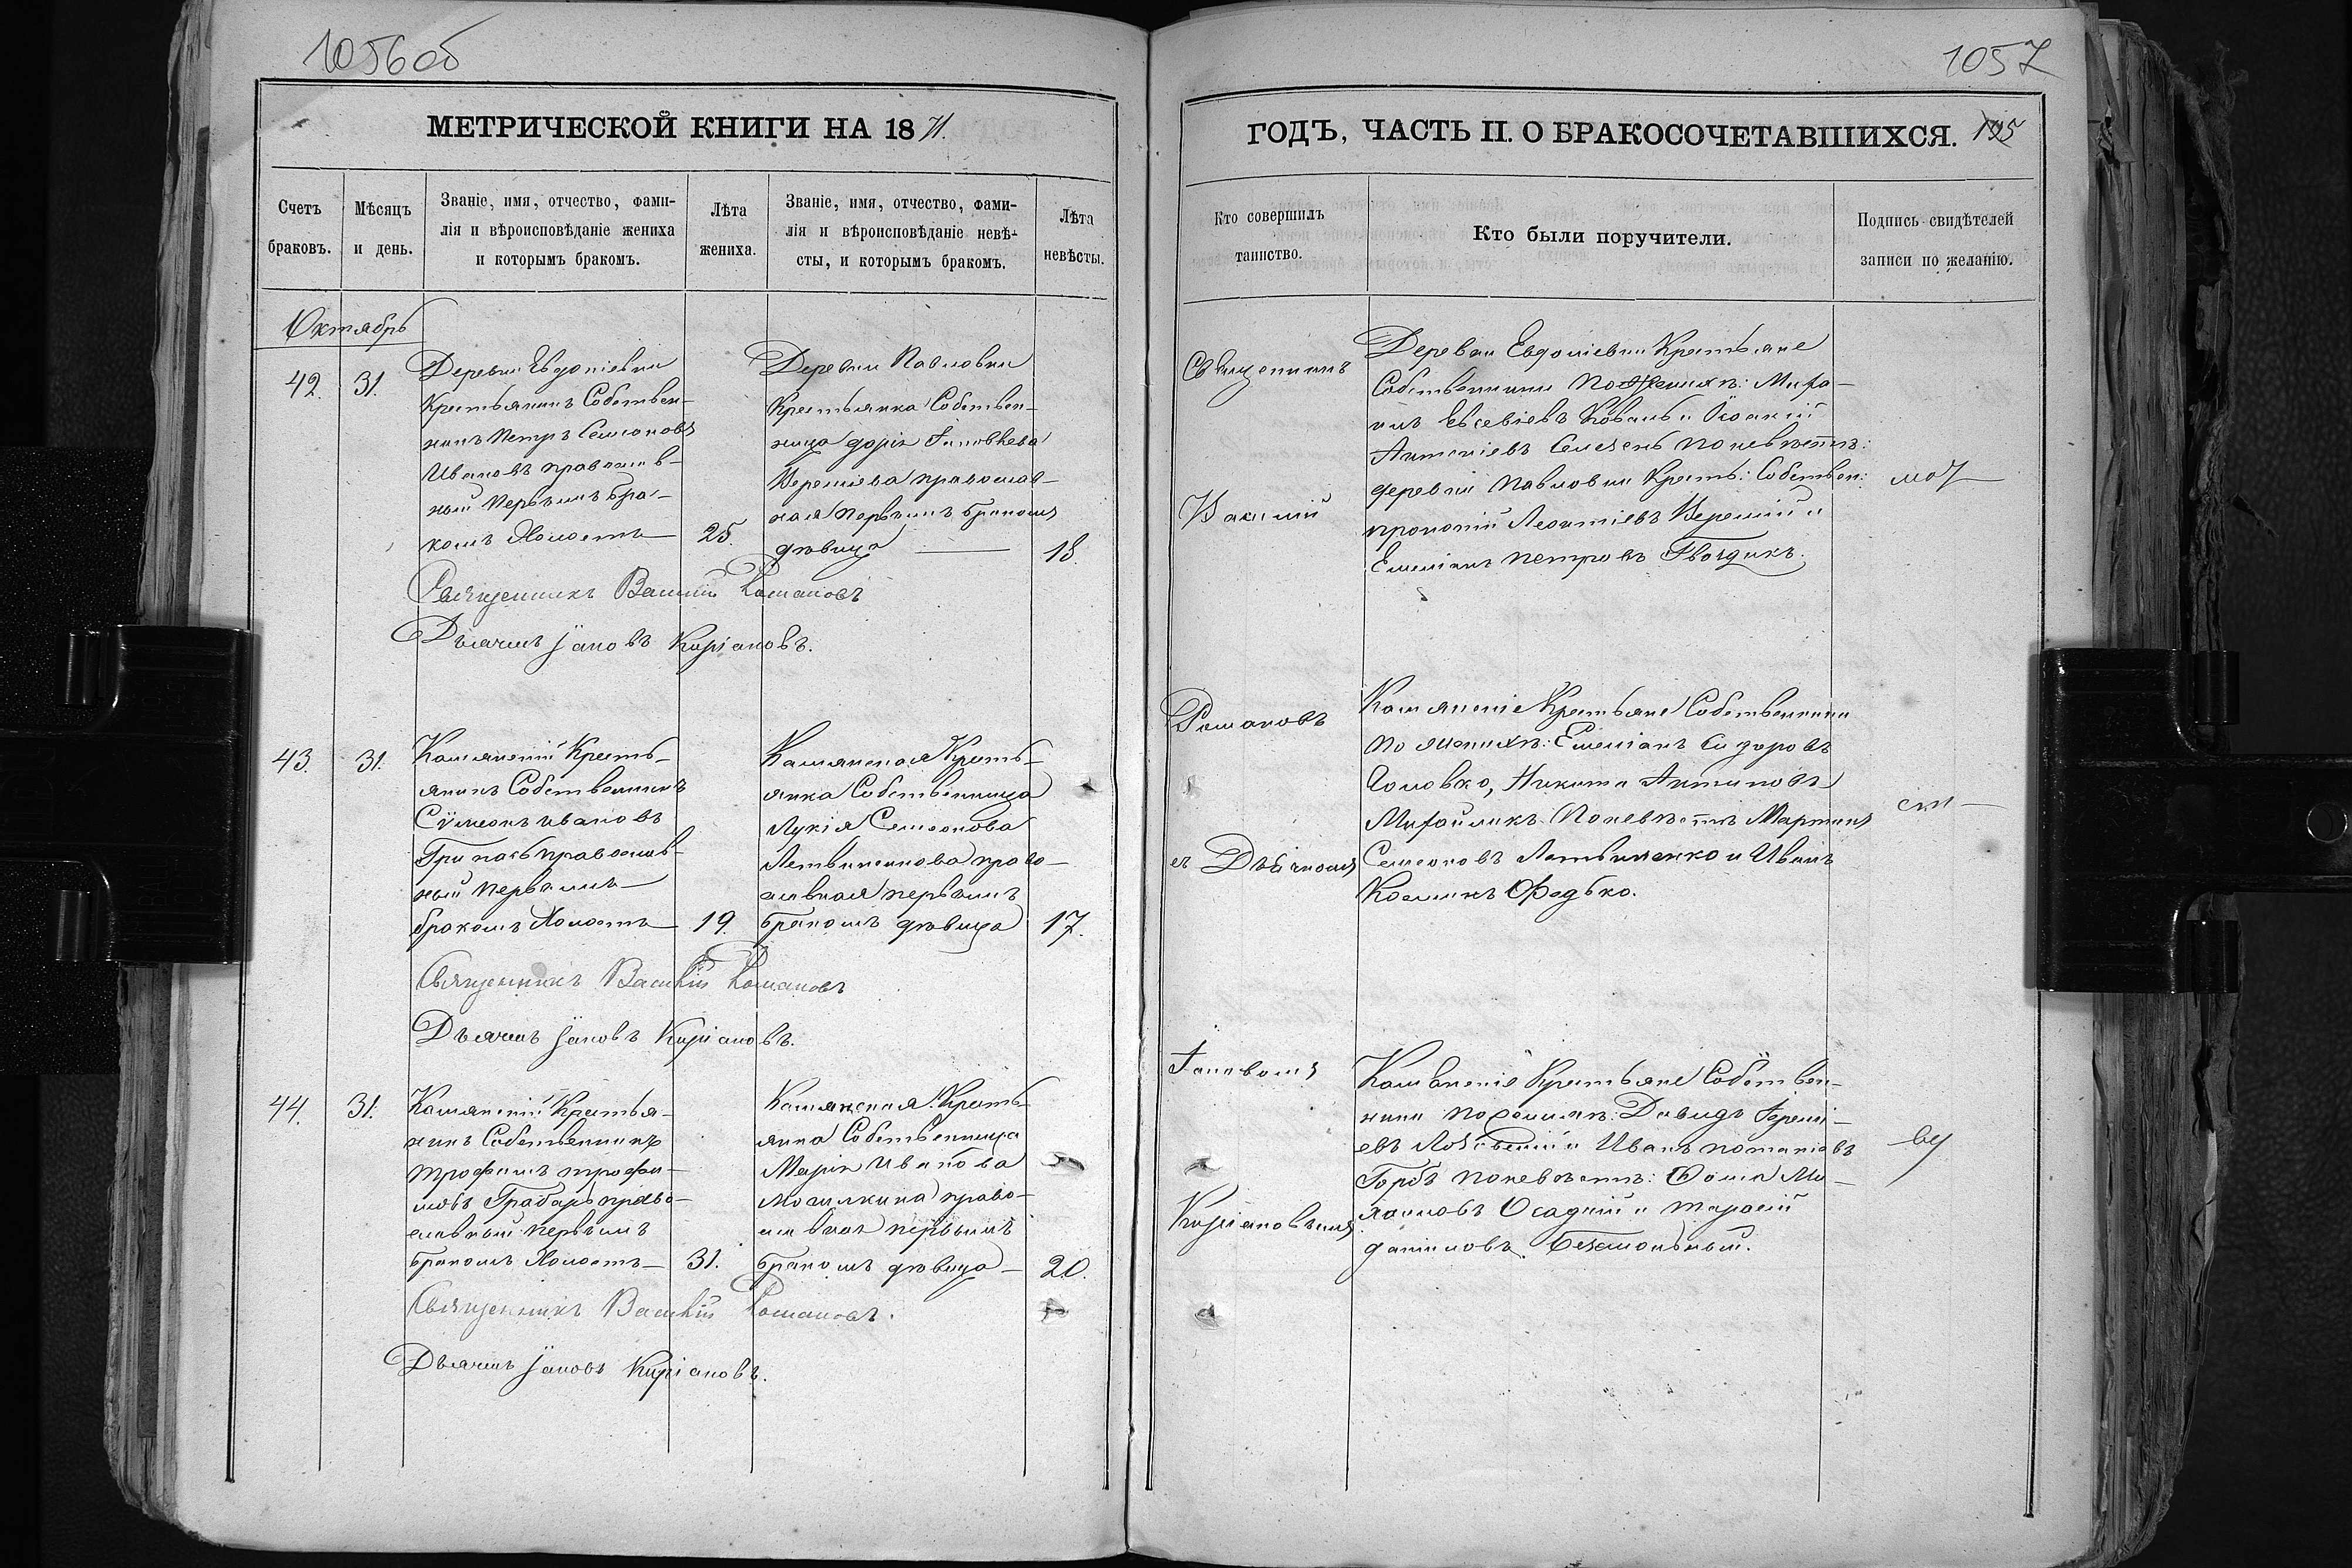 1056об
МЕТРИЧЕСКОЙ КНИГИ НА 1871.
Счетъ браковъ.
Мѣсяцъ и день.
Званіе, имя, отчество, фами-
лія и вѣроисповѣданіе жениха
и которымъ бракомъ.
Лѣта жениха.
Званіе, имя, отчество, фами-
лія и вѣроисповѣданіе невѣ-
сты, и которымъ бракомъ.
Лѣта невѣсты.
Октябрь
42. 31.
Деревни Евдокіевки
Крестьянинъ Собствен-
никъ Петръ Семеоновъ
Ивановъ православ-
ный первымъ бра-
комъ Холостъ
25.
Деревни Павловки
Крестьянка Собствен-
ница Дарія Іаковлева
православ-
ная первымъ бракомъ
дѣвица
18.
Священникъ Василій Романовъ
Дьячокъ Іаковъ Кирiановъ.
43. 31.
Камянскій Кресть-
янинъ Собственникъ
Сѵмеонъ Ивановъ
православ-
ный первымъ
бракомъ Холостъ
19.
Камянская Кресть-
янка Собственница
Лукія Семеонова
право-
славная первымъ
бракомъ дѣвица
17.
Священникъ Василій Романовъ
Дьячокъ Іаковъ Кирiановъ.
44. 31.
Камянскій Крестья-
нинъ Собственникъ
Трофимъ Трофи-
мовъ Грабарь право-
славный первымъ
бракомъ Холостъ
31.
Камянская Кресть-
янка Собственница
Марія Иванова
право-
славная первымъ
бракомъ дѣвица
20.
Священникъ Василій Романовъ.
Дьячокъ Іаковъ Кирiановъ.
1057
ГОДЪ, ЧАСТЬ II. О БРАКОСОЧЕТАВШИХСЯ. 195
Кто совершилъ таинство.
Кто были поручители.
Подпись свидѣтелей
записи по желанію.
Священникъ
Василій
Романовъ
съ Дьячкомъ
Іаковомъ
Кирiановымъ
Деревни Евдокіевки Крестьяне
Собственники по женихѣ:
Евсевіевъ Коваль и Іоакій
Антоніевъ по невѣстѣ:
деревни Павловки Кресть: Собствен:
Прокопій Леонтіевъ Веремій и
Емеліанъ Петровъ Гвоздикъ.
Камянскіе Крестьяне Собственники
по женихѣ: Емеліанъ Сидоровъ
Головко, Никита Антиповъ
Михайликъ. По невѣстѣ Мартинъ
Семеоновъ и Иванъ
Федько.
Камянскіе Крестьяне Собствен-
ники по женихѣ: Давидъ Іеремі-
евъ и Иванъ Потаповъ
Горбъ по невѣстѣ: Фома Ми-
хайловъ Осадчій и Тарасій
Даниловъ